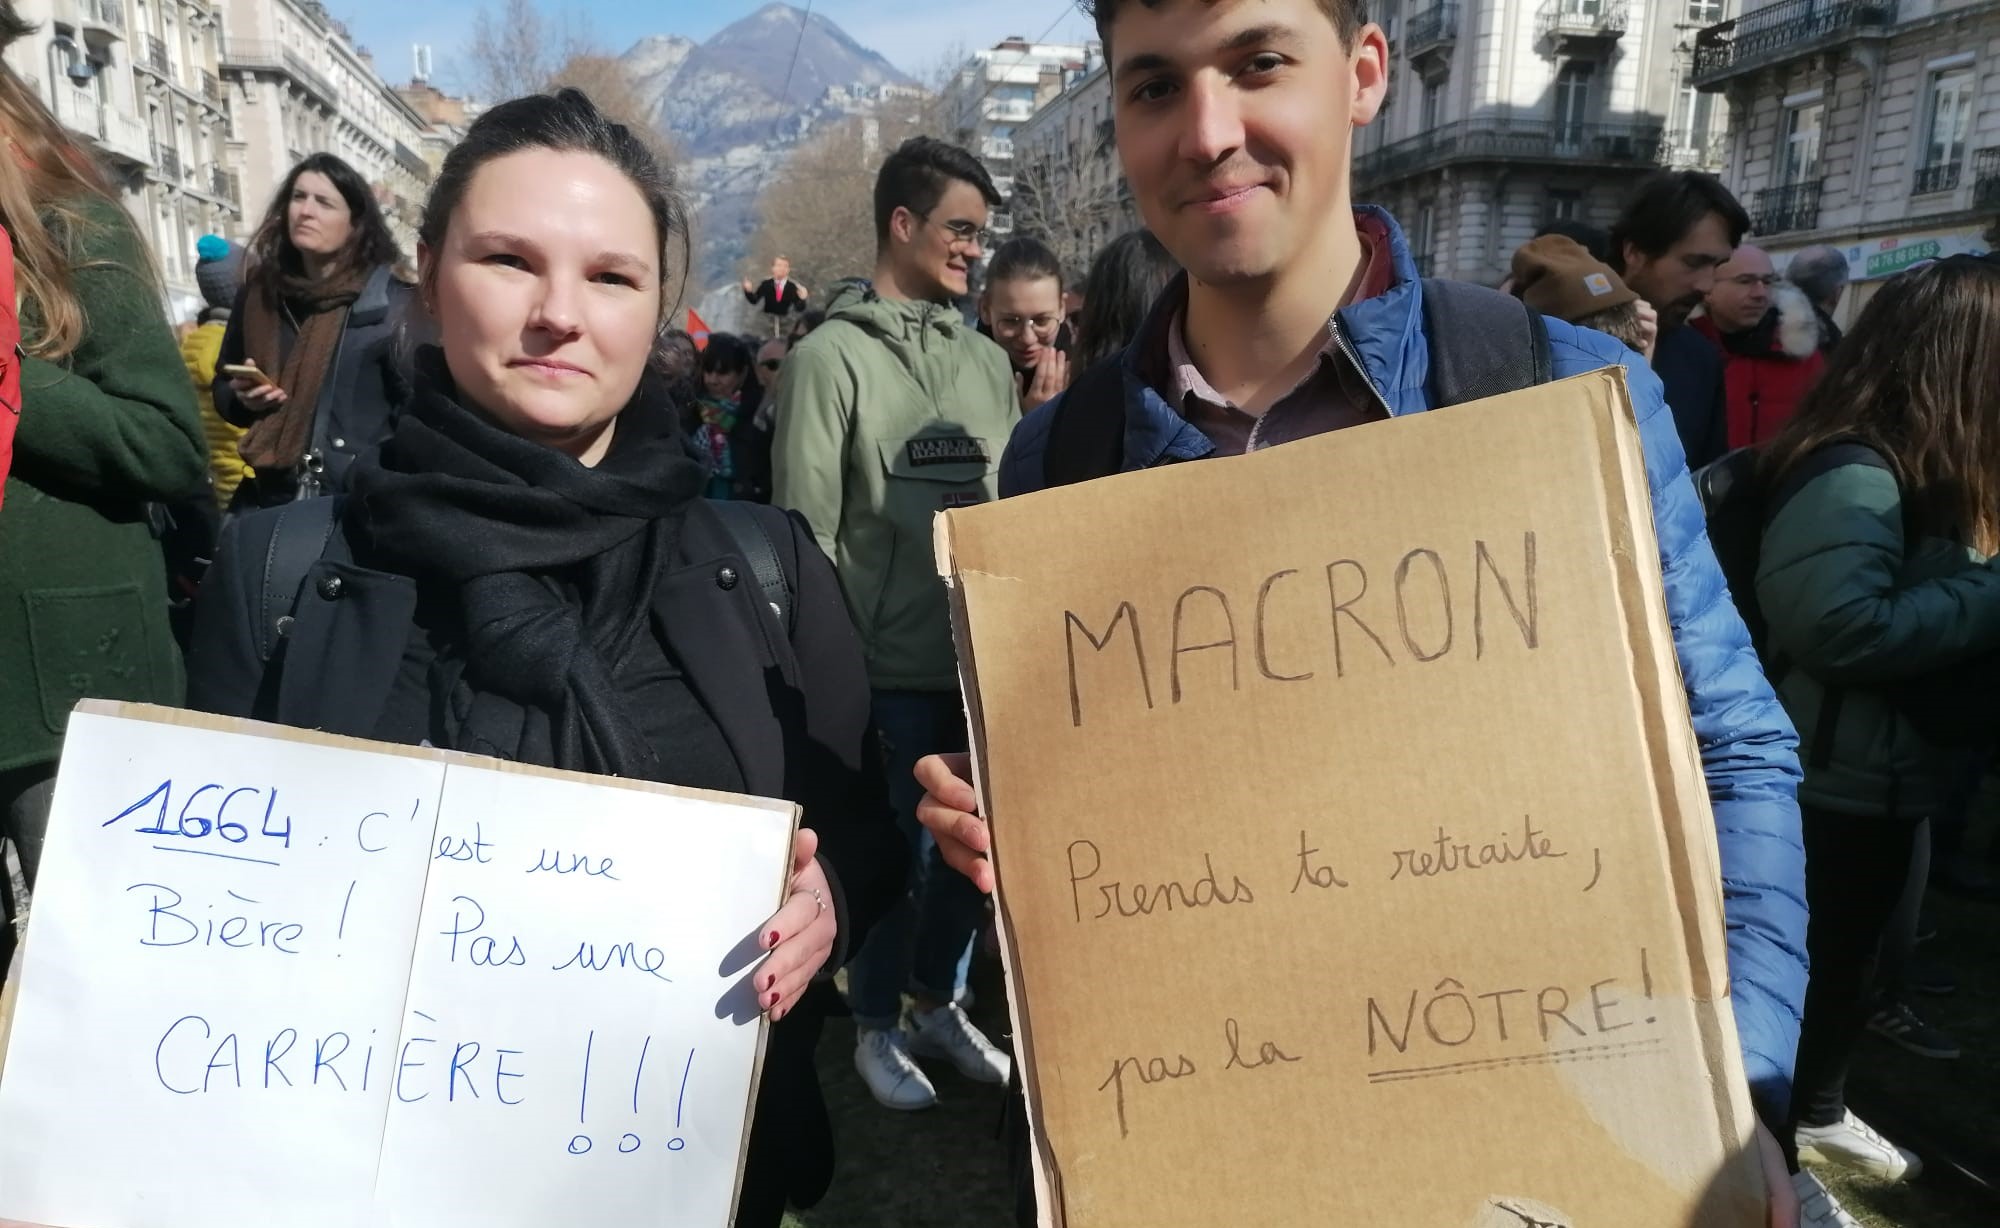 1664 : C'est une
Bière ! Pas une
CARRIÈRE !!!
MACRON
Prends ta retraite,
pas la NÔTRE!
NAPAPIJRI
04 76 86 04 55